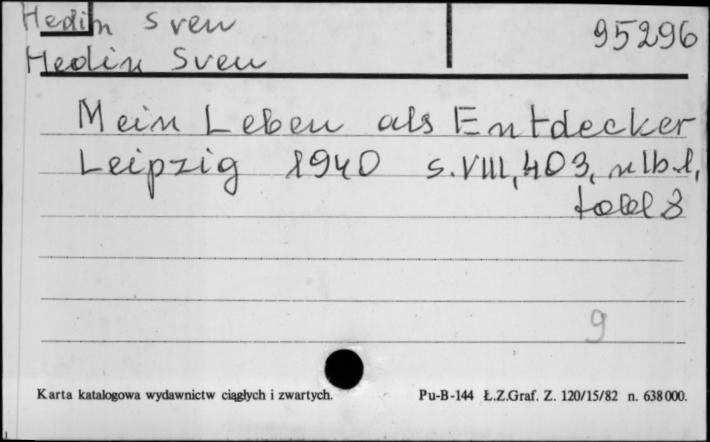 Hedin Sven
95296
Hedin Sven
Mein Leben als Entdecker
Leipzig 1940 s. VIII, 403, nlb. 1,
tabl 8
9
Karta katalogowa wydawnictw ciągłych i zwartych.
Pu-B-144 Ł.Z.Graf. Z. 120/15/82 n. 638000.